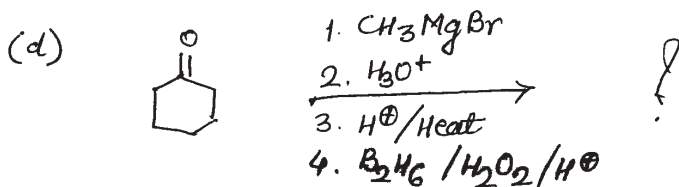 (d)
O
1. CH3MgBr
2. H3O+
3. H⊕/Heat
4. B2H6/H2O2/H⊕
?